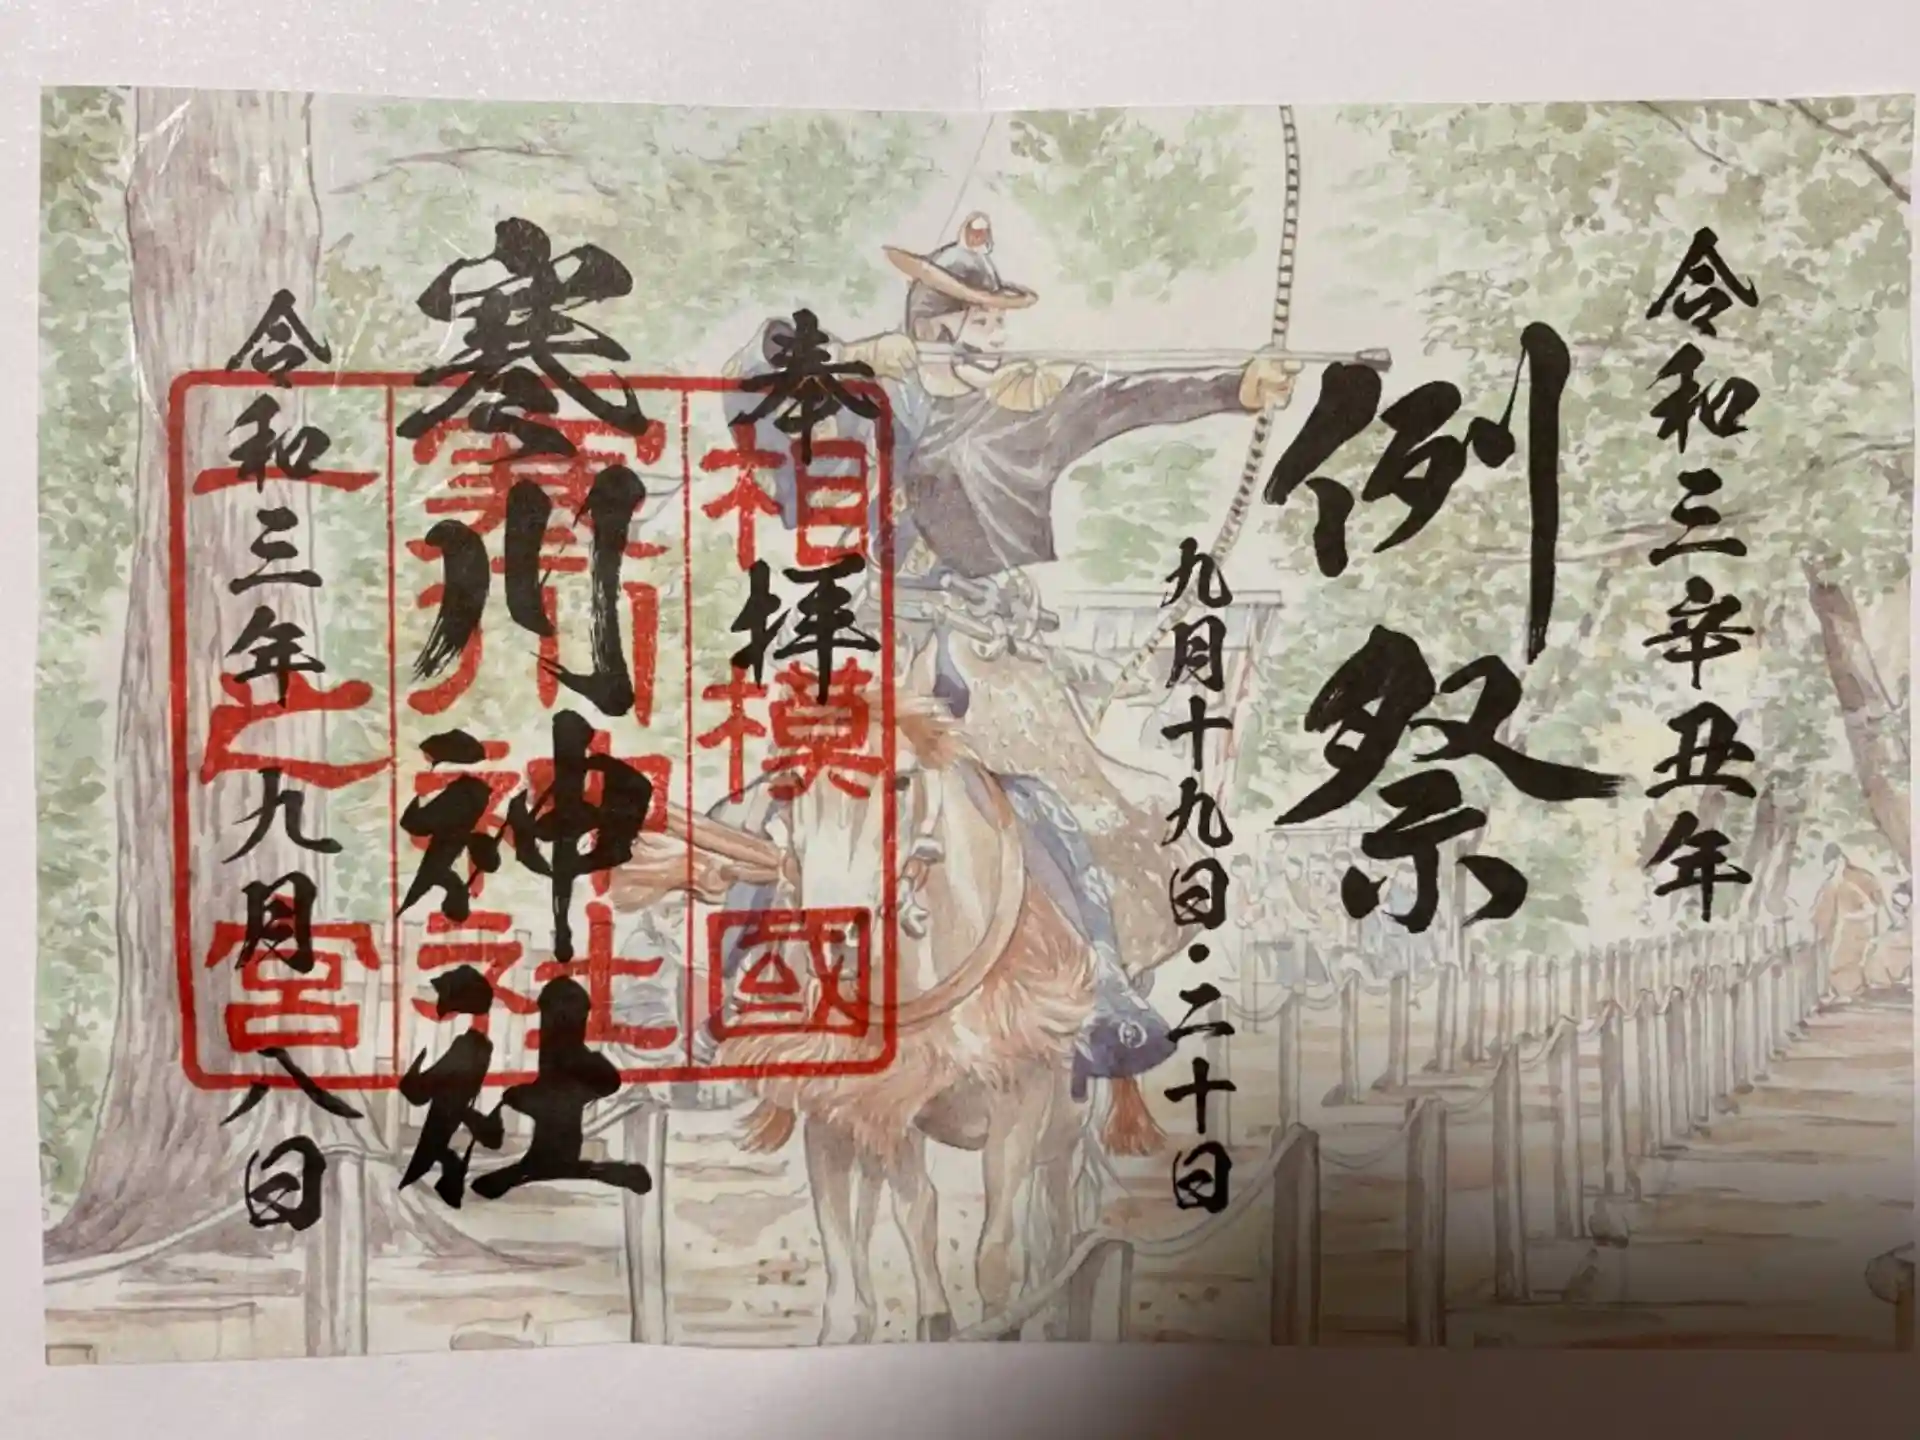 令和三辛丑年
例祭
九月十九日・二十日
奉拝
相模國
寒川神社
寒川神社
一之宮
令和三年九月八日